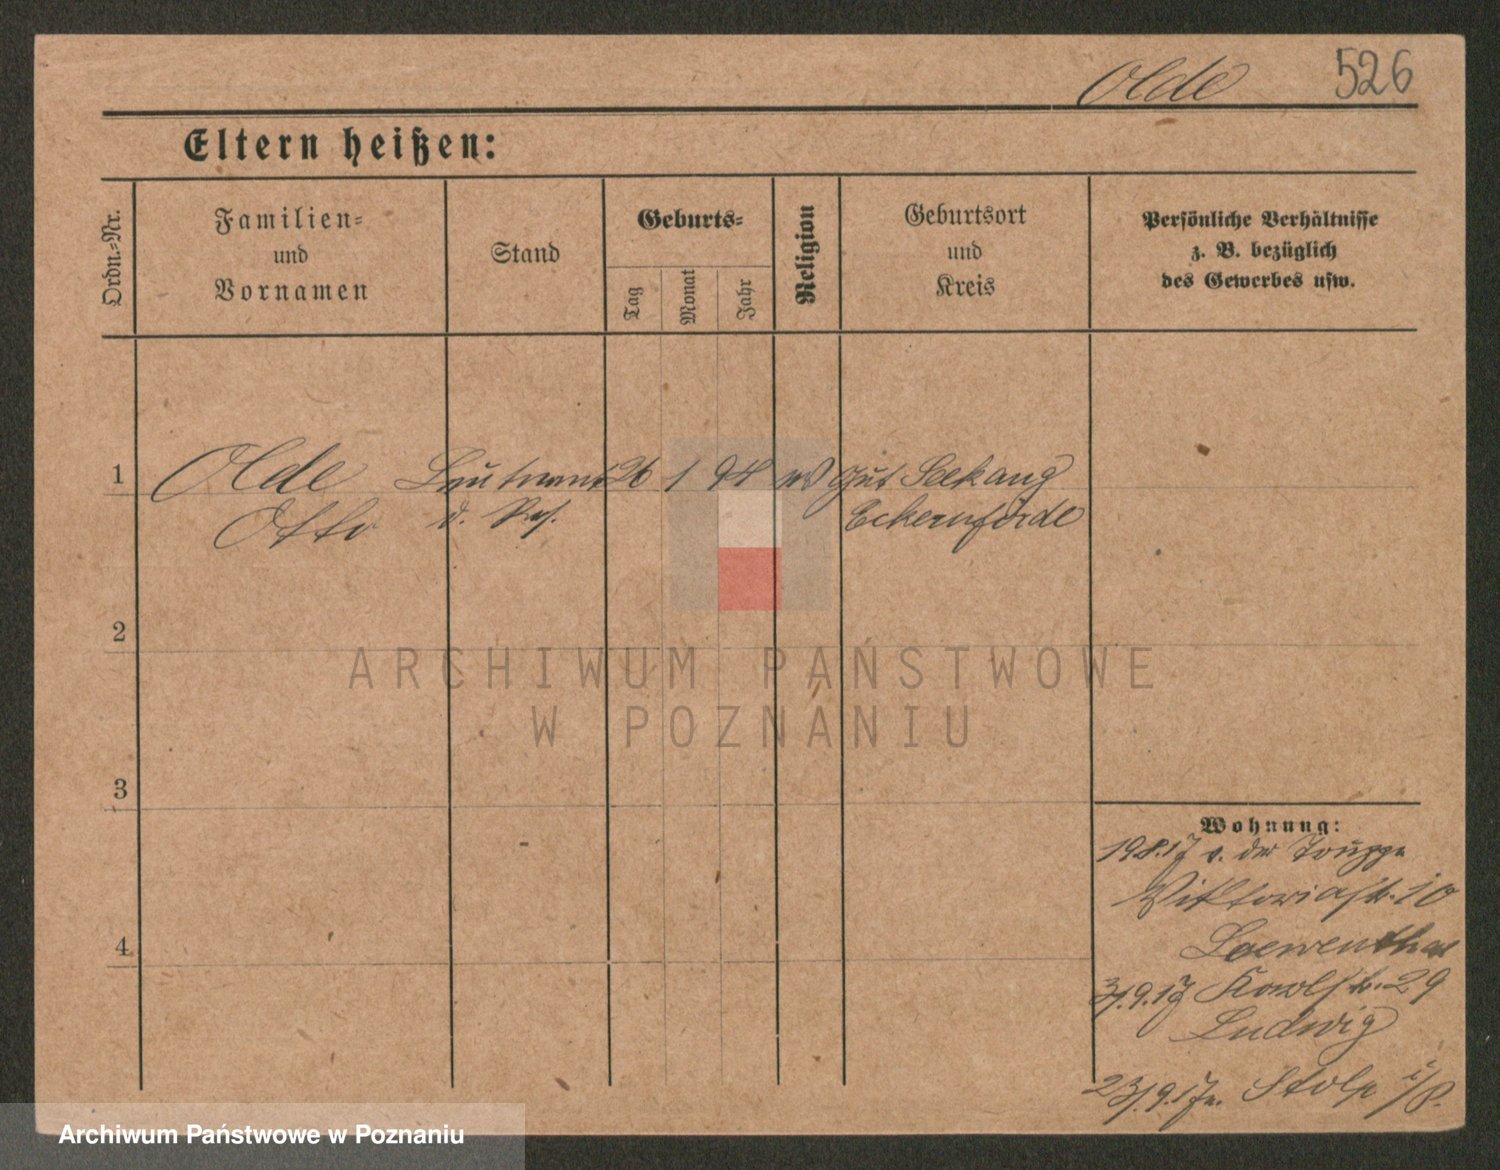 Olde 526
Eltern heißen:
Ordn.-Nr.
Familien-
und
Vornamen
Stand
Geburts-
Tag
Monat
Jahr
Religion
Geburtsort
und
Kreis
Persönliche Verhältnisse
z. B. bezüglich
des Gewerbes usw.
1 Olde Leutnant 26 1 94 Gut Seekamp
Otto d. Res. Eckernförde
2
3
4
Wohnung:
19.8.17 v. der Truppe
Viktoriastr. 10
Loewenthal
3/9.17 Karlstr. 29
Ludwig
23/9.17 n. Stolp i/P.
ARCHIWUM PAŃSTWOWE
W POZNANIU
Archiwum Państwowe w Poznaniu